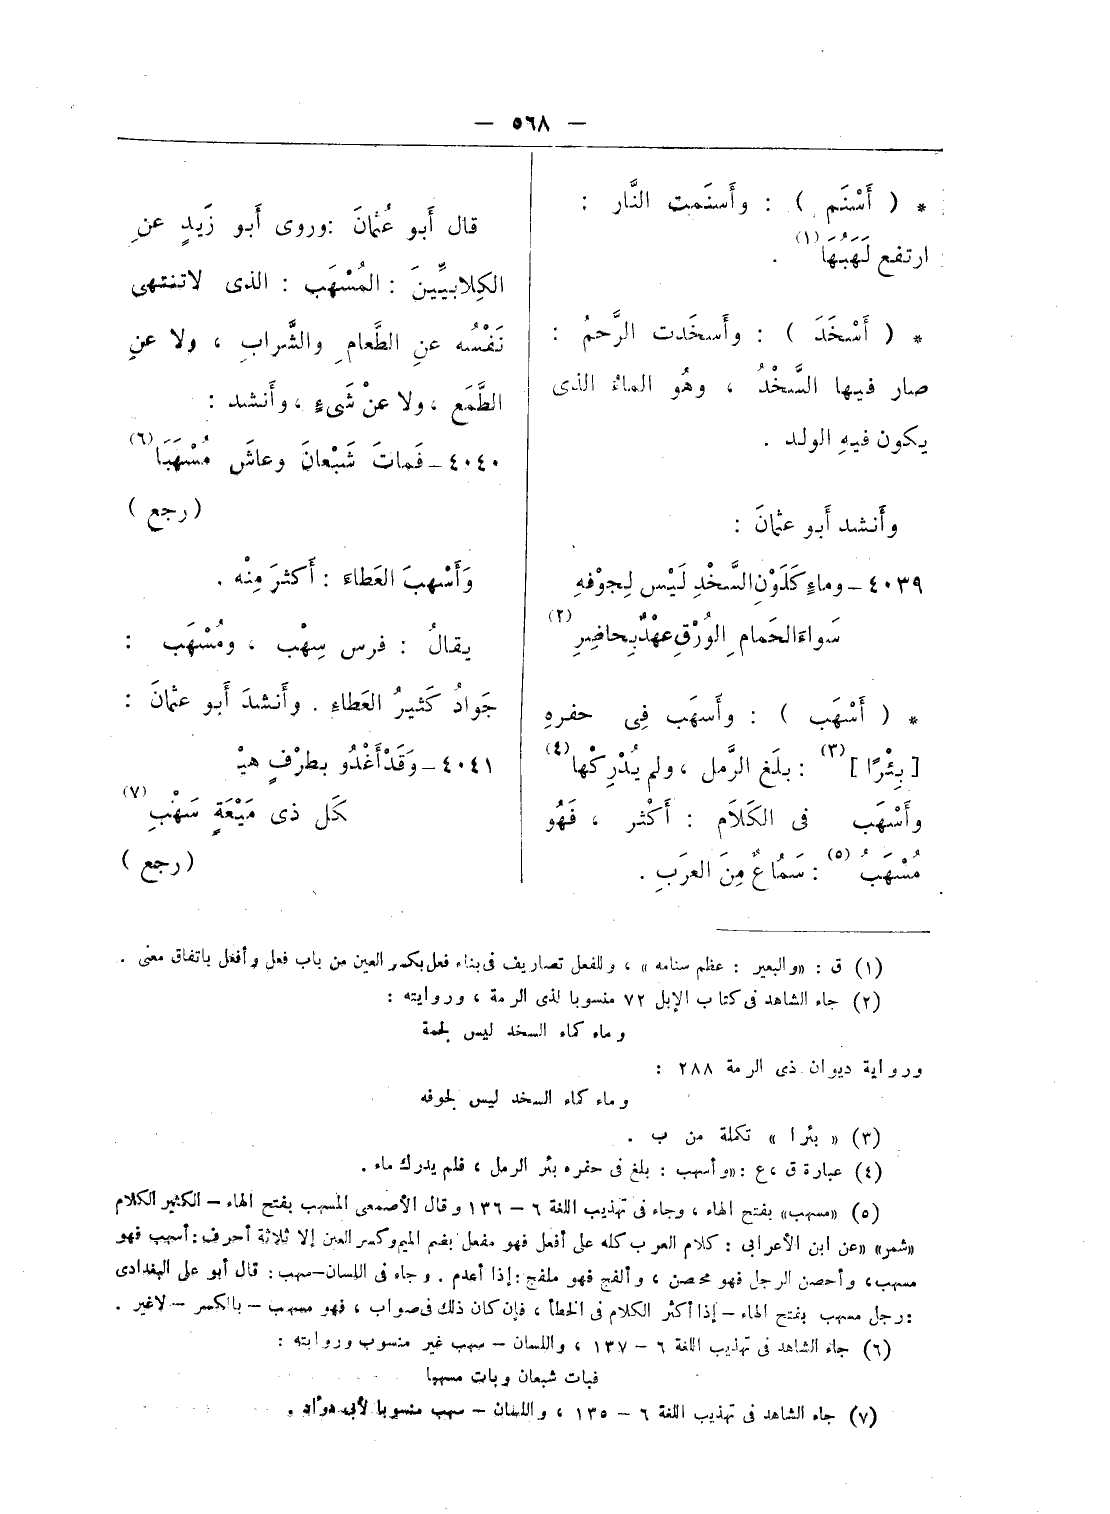 — ٥٦٨ —
* ( أَسْنَم ) : وأَسنَمت النَّار :
ارتفع لَهَبُهَا (١) .
* ( أَسْخَدَ ) : وأَسخَدت الرَّحمُ :
صار فيها السُّخْدُ ، وهُو الماءُ الذى
يكون فيهِ الولد .
وأَنشد أَبو عثمانَ :
٤٠٣٩ – وماءٍ كَلَوْنِ السَّخْدِ لَيْس لِجوْفهِ
سَواءَ الحَمامِ الوُرْقِ عهْدٌ بِحاضِرِ (٢)
* ( أَسْهَب ) : وأَسهَب فِى حفرهِ
[ بِئْرًا ] (٣) : بلَغ الرَّمل ، ولم يُدْرِكْها (٤)
وأَسْهَب فى الكَلَام : أَكْثر ، فَهُو
مُسْهَبٌ (٥) : سَمَاعٌ مِنَ العرَبِ .
قال أَبو عُثمانَ : وروى أَبو زَيدٍ عنِ
الكِلابيِّينَ : المُسْهَب : الذى لاتنتهى
نَفْسُه عنِ الطَّعامِ والشَّرابِ ، ولا عنِ
الطَّمَع ، ولا عنْ شَىءٍ ، وأَنشد :
٤٠٤٠ – فَماتَ شَبْعانَ وعاشَ مُسْهَبَا (٦)
( رجع )
وَأَسْهبَ العَطاءَ : أَكثرَ مِنْه .
يقالُ : فرس سِهْب ، ومُسْهَب :
جَوادٌ كَثيرُ العَطاءِ . وأَنشدَ أَبو عثمانَ :
٤٠٤١ – وَقَدْ أَغْدُو بطرْفٍ هيْـ
كَل ذى مَيْعَةٍ سَهْبِ (٧)
( رجع )
(١) ق : « والبعير : عظم سنامه » ، وللفعل تصاريف فى بناء فعل بكسر العين من باب فعل وأفعل باتفاق معنى .
(٢) جاء الشاهد فى كتاب الإبل ٧٢ منسوبا لذى الرمة ، وروايته :
وماء كماء السخد ليس لجمة
ورواية ديوان ذى الرمة ٢٨٨ :
وماء كماء السخد ليس لجوفه
(٣) « بئرا » تكملة من ب .
(٤) عبارة ق ، ع : « وأسهب : بلغ فى حفره بئر الرمل ، فلم يدرك ماء .
(٥) « مسهب » بفتح الهاء ، وجاء فى تهذيب اللغة ٦ – ١٣٦ وقال الأصمعى المسهب بفتح الهاء – الكثير الكلام
« شمر » « عن ابن الأعرابى : كلام العرب كله على أفعل فهو مفعل بضم الميم وكسر العين إلا ثلاثة أحرف : أسهب فهو
مسهب ، وأحصن الرجل فهو محصن ، وألفج فهو ملفج : إذا أعدم . وجاء فى اللسان – سهب : قال أبو على البغدادى
: رجل مسهب بفتح الهاء – إذا أكثر الكلام فى الخطأ ، فإن كان ذلك فى صواب ، فهو مسهب – بالكسر – لاغير .
(٦) جاء الشاهد فى تهذيب اللغة ٦ – ١٣٧ ، واللسان – سهب غير منسوب وروايته :
فبات شبعان وبات مسهبا
(٧) جاء الشاهد فى تهذيب اللغة ٦ – ١٣٥ ، واللسان – سهب منسوبا لأبى دؤاد .